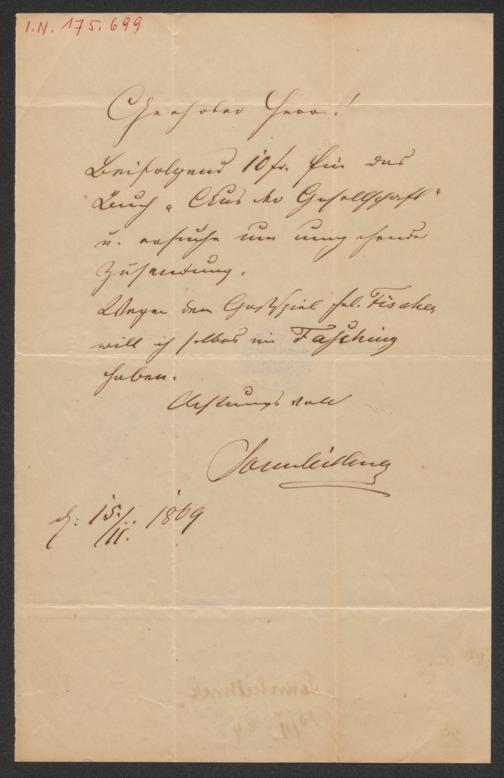 I.N. 175.699
Geehrter Herr!
Beifolgend 10 fr. für das
Buch „Aus der Gesellschaft“
u. ersuche um umgehende
Zusendung.
Wegen dem Gastspiel frl. Fischer
will ich selbes im Fasching
haben.
Achtungsvoll
Sonnleithner
15./II. 1869